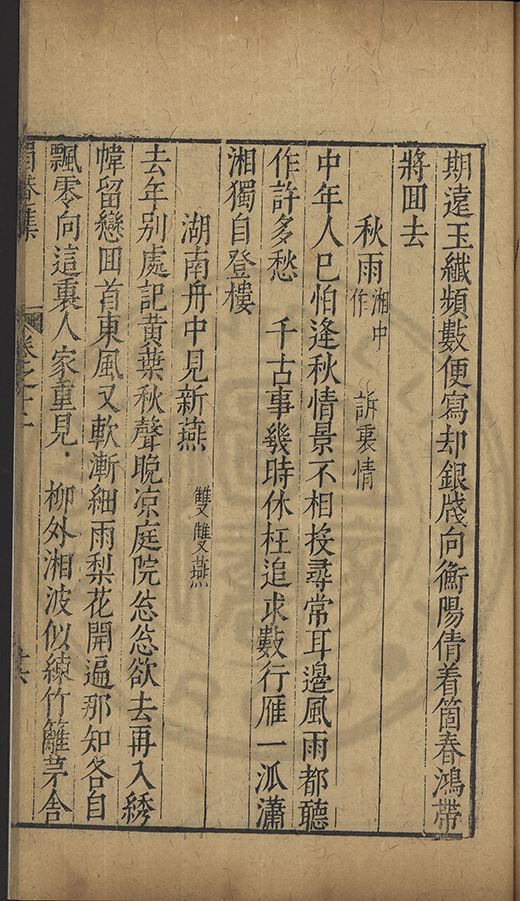 期遠玉纖頻數便寫却銀牋向衡陽倩着箇春鴻帶
將囬去
秋雨 湘中作 訴衷情
中年人已怕逢秋情景不相投尋常耳邊風雨都聽
作許多愁 千古事幾時休枉追求數行雁一派瀟
湘獨自登樓
湖南舟中見新燕 雙雙燕
去年别處記黄葉秋聲晚凉庭院忩忩欲去再入綉
幃留戀囬首東風又軟漸細雨梨花開遍那知各自
飄零向這裏人家重見 柳外湘波似練竹籬茅舍
卷之十二